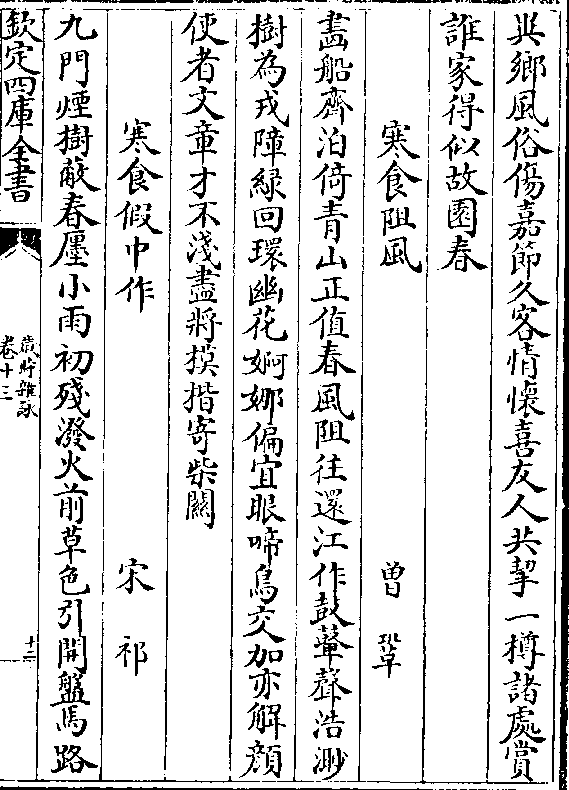 異鄉風俗傷嘉節久客情懷喜友人共挈一樽諸處賞
誰家得似故園春
寒食阻風 曾鞏
畵船齊泊倚青山正值春風阻往還江作鼓鼙聲浩渺
樹為戎障綠回環幽花婀娜偏宜眼啼鳥交加亦解顔
使者文章才不淺盡將摸揩寄柴關
寒食假中作 宋祁
九門煙樹蔽春㕓小雨初殘潑火前草色引開盤馬路
欽定四庫全書
歲時雜詠
卷十三
十二